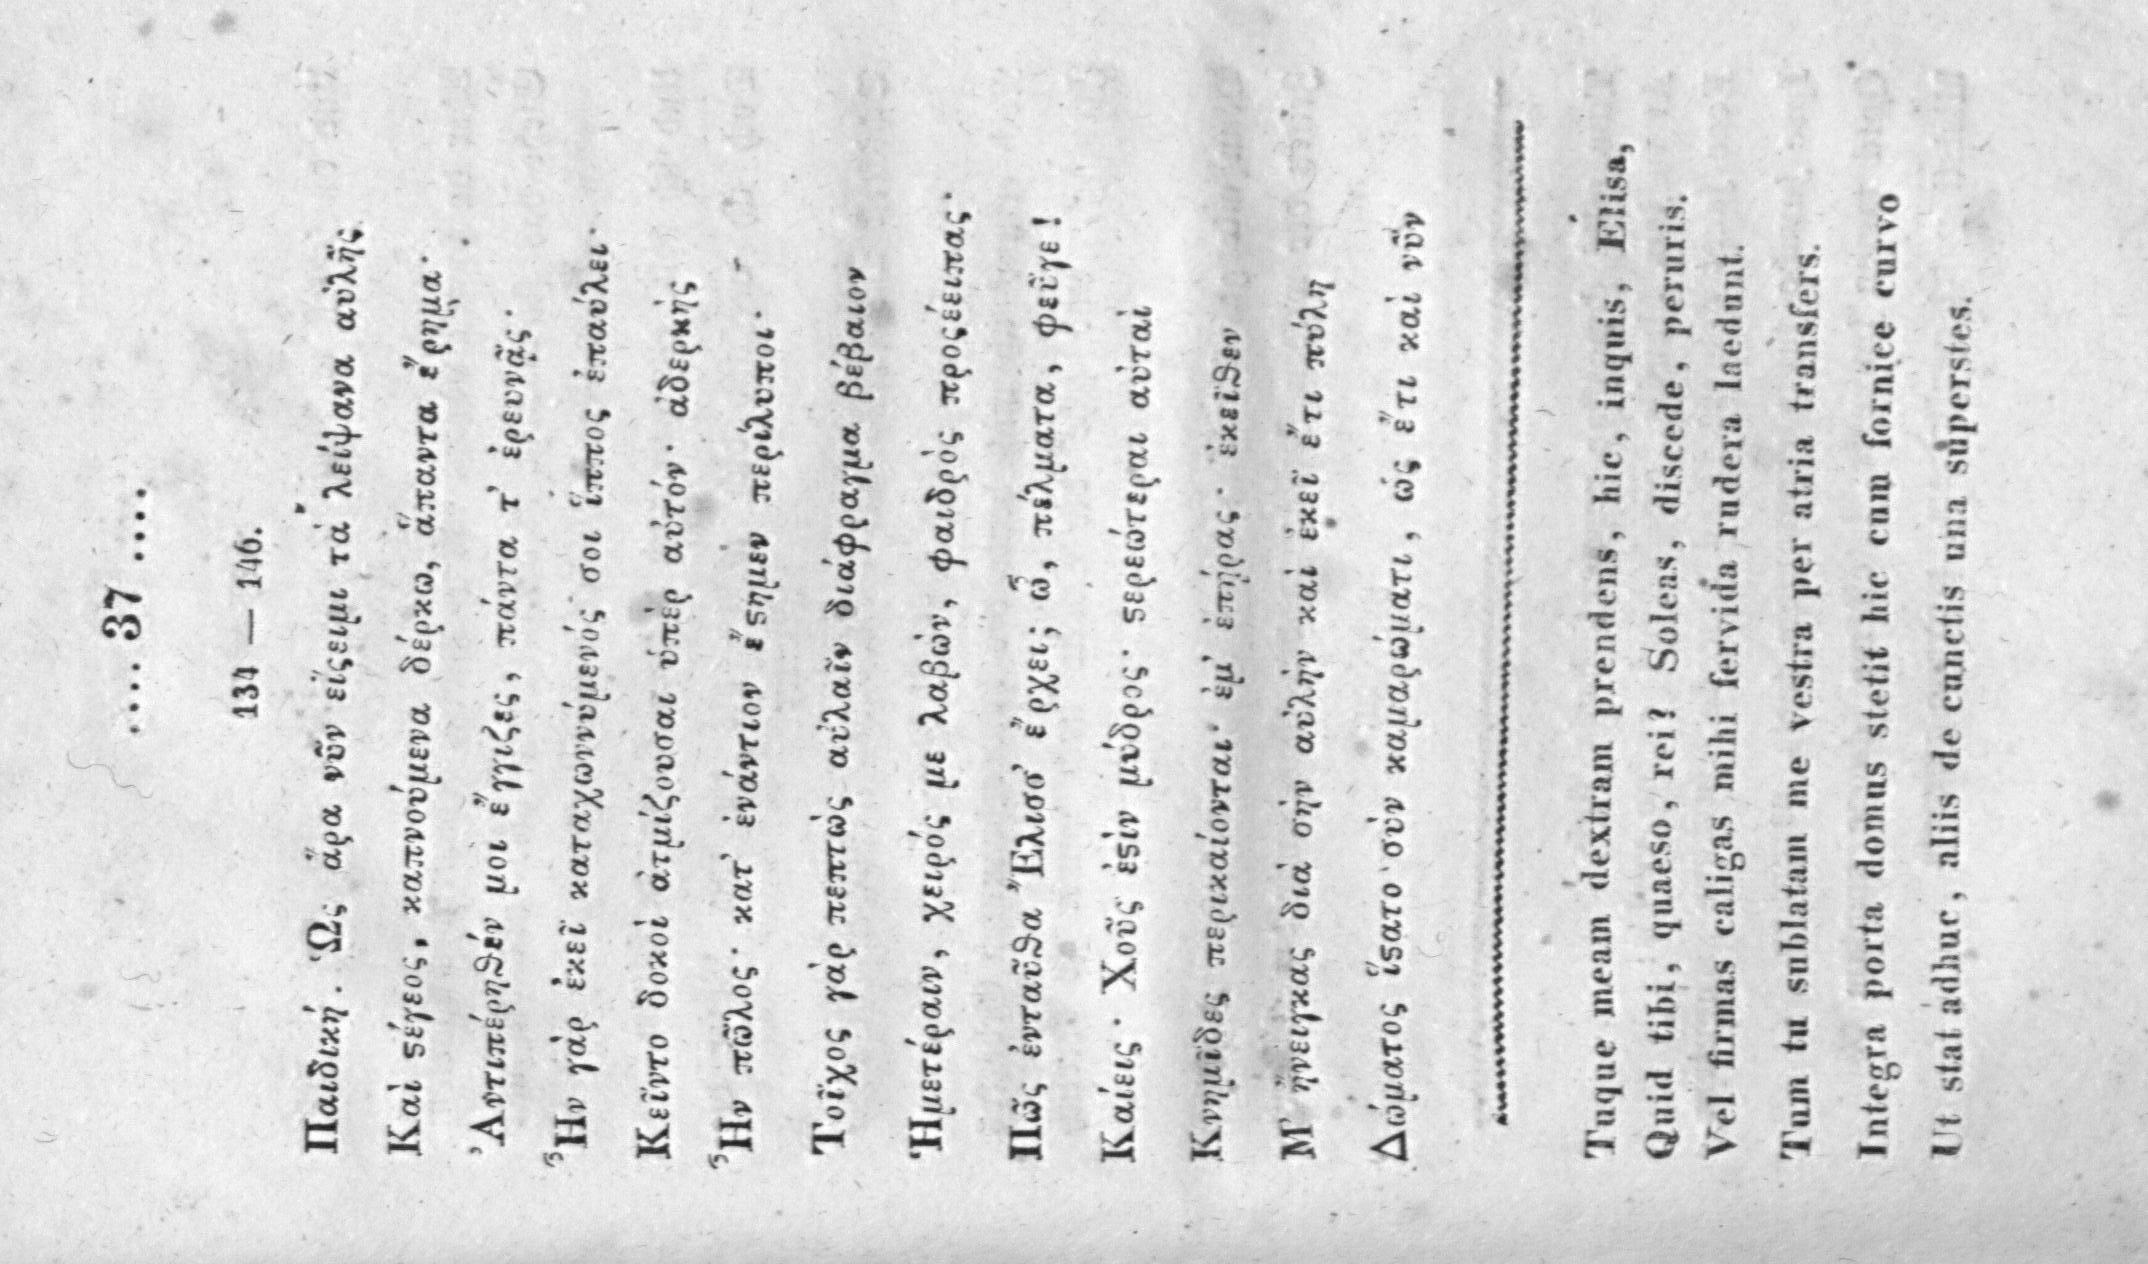 .... 37 ....
134 — 146.
Παιδική. Ὡς ἄρα νῦν εἴςειμι τὰ λείψανα αὐλῆς
Καὶ ϛέγεος, καπνούμενα δέρκω, ἅπαντα ἔρημα·
Ἀντιπέρηθέν μοι ἔγγιζες, πάντα τ' ἐρευνᾷς·
Ἦν γὰρ ἐκεῖ καταχωννύμενός σοι ἵππος ἐπαύλει·
Κεῖντο δοκοὶ ἀτμίζουσαι ὑπὲρ αὐτόν· ἀδερκὴς
Ἦν πῶλος· κατ' ἐνάντιον ἔϛημεν περίλυποι·
Τοῖχος γὰρ πεπτὼς αὐλαῖν διάφραγμα βέβαιον
Ἡμετέραιν, χειρός με λαβὼν, φαιδρὸς προςέειπας·
Πῶς ἐνταῦθα Ἔλισσ' ἔρχει; ὦ, πέλματα, φεῦγε!
Καίεις· Χοῦς ἐϛὶν μύδρος· ϛερεώτεραι αὐταὶ
Κνημῖδες περικαίονται· ἐμ' ἐπῄρας· ἐκεῖθεν
Μ' ἤνειγκας διὰ σὴν αὐλὴν καὶ ἐκεῖ ἔτι πύλη
Δώματος ἵϛατο σὺν καμαρώματι, ὡς ἔτι καὶ νῦν
Tuque meam dextram prendens, hic, inquis, Elisa,
Quid tibi, quaeso, rei? Soleas, discede, peruris.
Vel firmas caligas mihi fervida rudera laedunt.
Tum tu sublatam me vestra per atria transfers.
Integra porta domus stetit hic cum fornice curvo
Ut stat adhuc, aliis de cunctis una superstes.